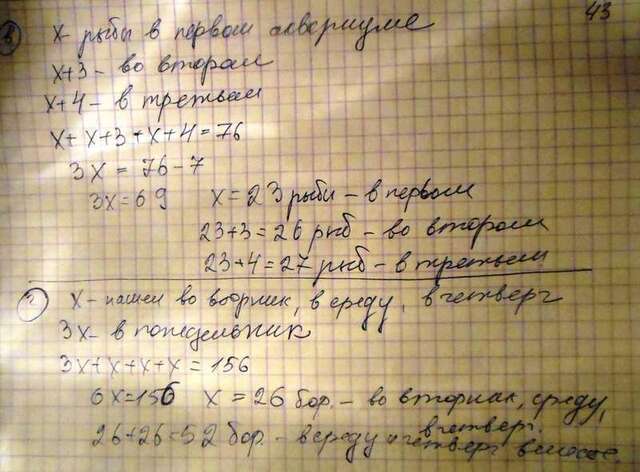 43
в) х - рыбы в первом аквариуме
х+3 - во втором
х+4 - в третьем
х + х+3 + х+4 = 76
3х = 76-7
3х = 69 х = 23 рыбы - в первом
23+3 = 26 рыб - во втором
23+4 = 27 рыб - в третьем
г) х - нашел во вторник, в среду, в четверг
3х - в понедельник
3х+х+х+х = 156
6х=156 х = 26 бор. - во вторник, среду,
в четверг.
26+26=52 бор. - в среду и четверг вместе.